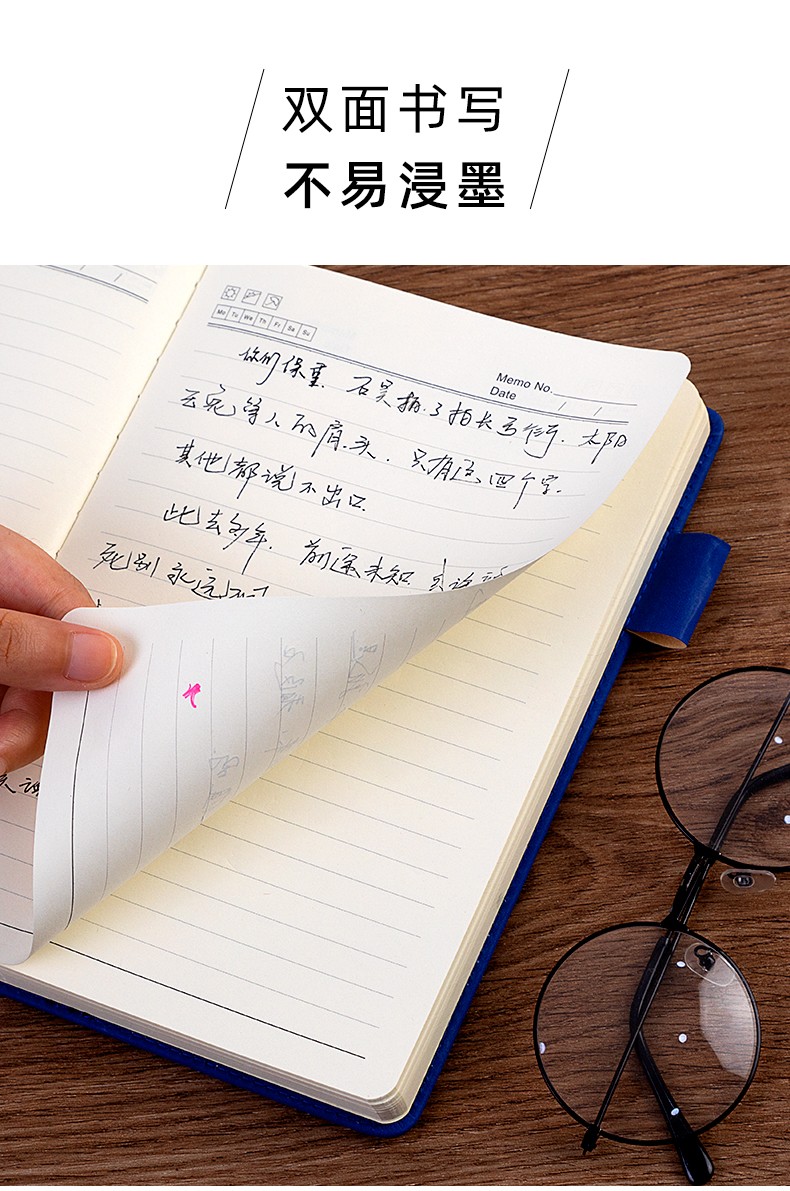 双面书写
不易浸墨
Mo Tu We Th Fr Sa Su
Memo No.
Date / /
你们保重. 石昊拍了拍长弓衍. 太阳
云宛等人的肩头. 只有这四个字.
其他都说不出口.
此去多年. 前途未知.
死别 永远